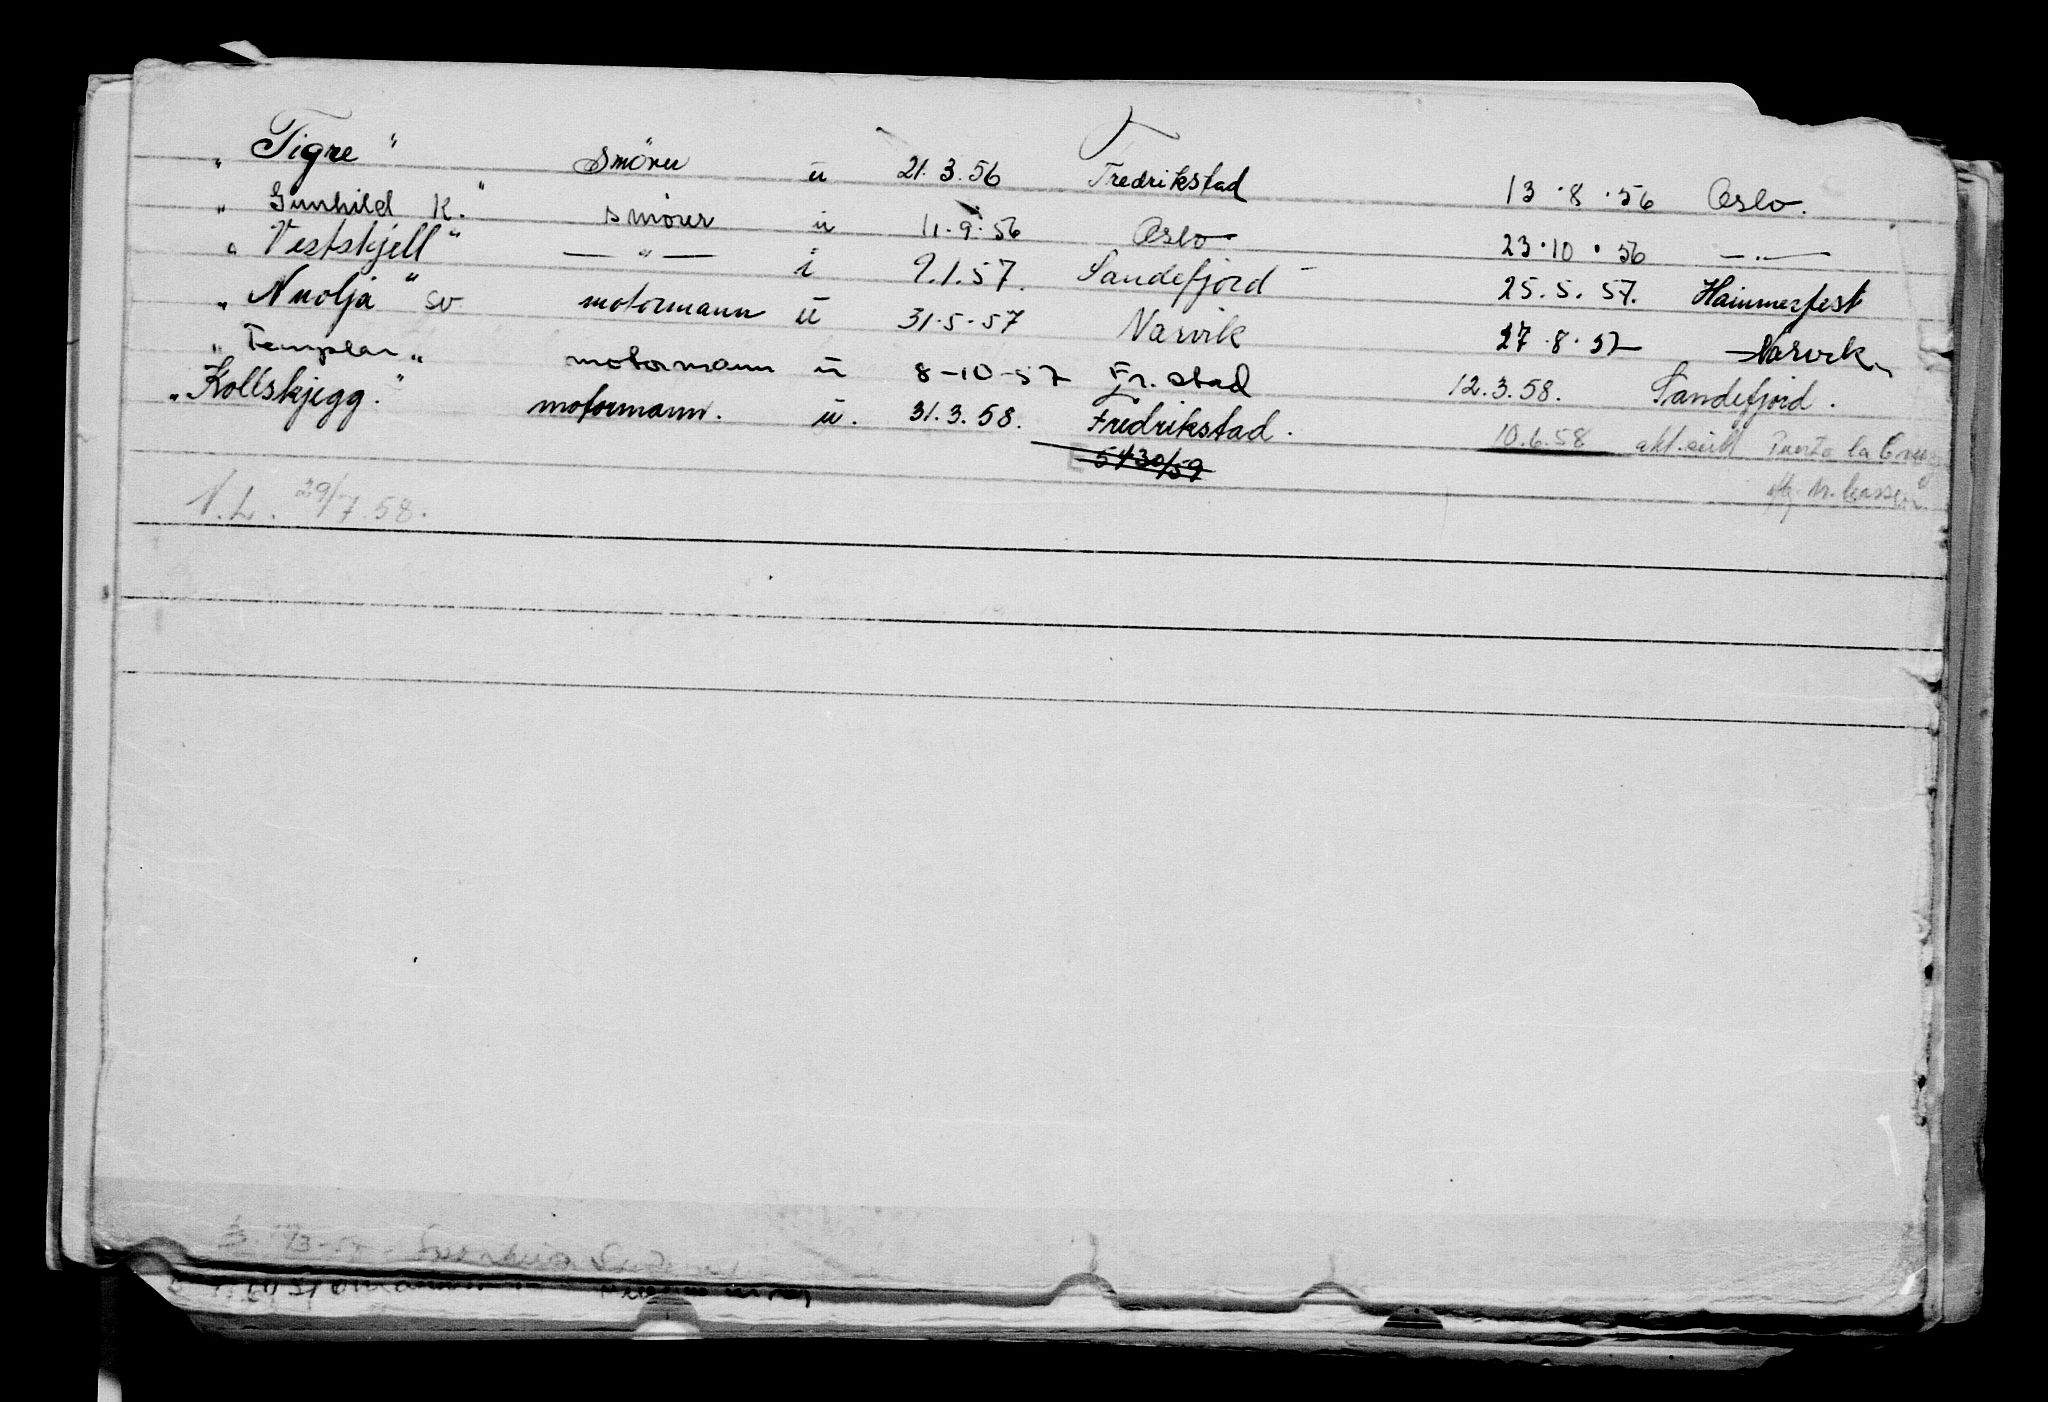 „ Tigre " smörer u 21.3.56 Fredrikstad 13.8.56 Oslo.
„ Gunhild K." smörer u 11.9.56 Oslo 23.10.56 —„—
„ Vestskjell " —„— i 9.1.57. Sandefjord - 25.5.57. Hammerfest
„ Nuolja " sv motormann u 31.5.57 Narvik 27.8.57 Narvik
„ Templar „ motormann u 8-10-57 Fr.stad 12.3.58. Sandefjord.
„ Kollskjegg." motormann. u. 31.3.58. Fredrikstad. 10.6.58 akt.seilt Puerto la Cruz
5430/59
N.L. 29/7.58.